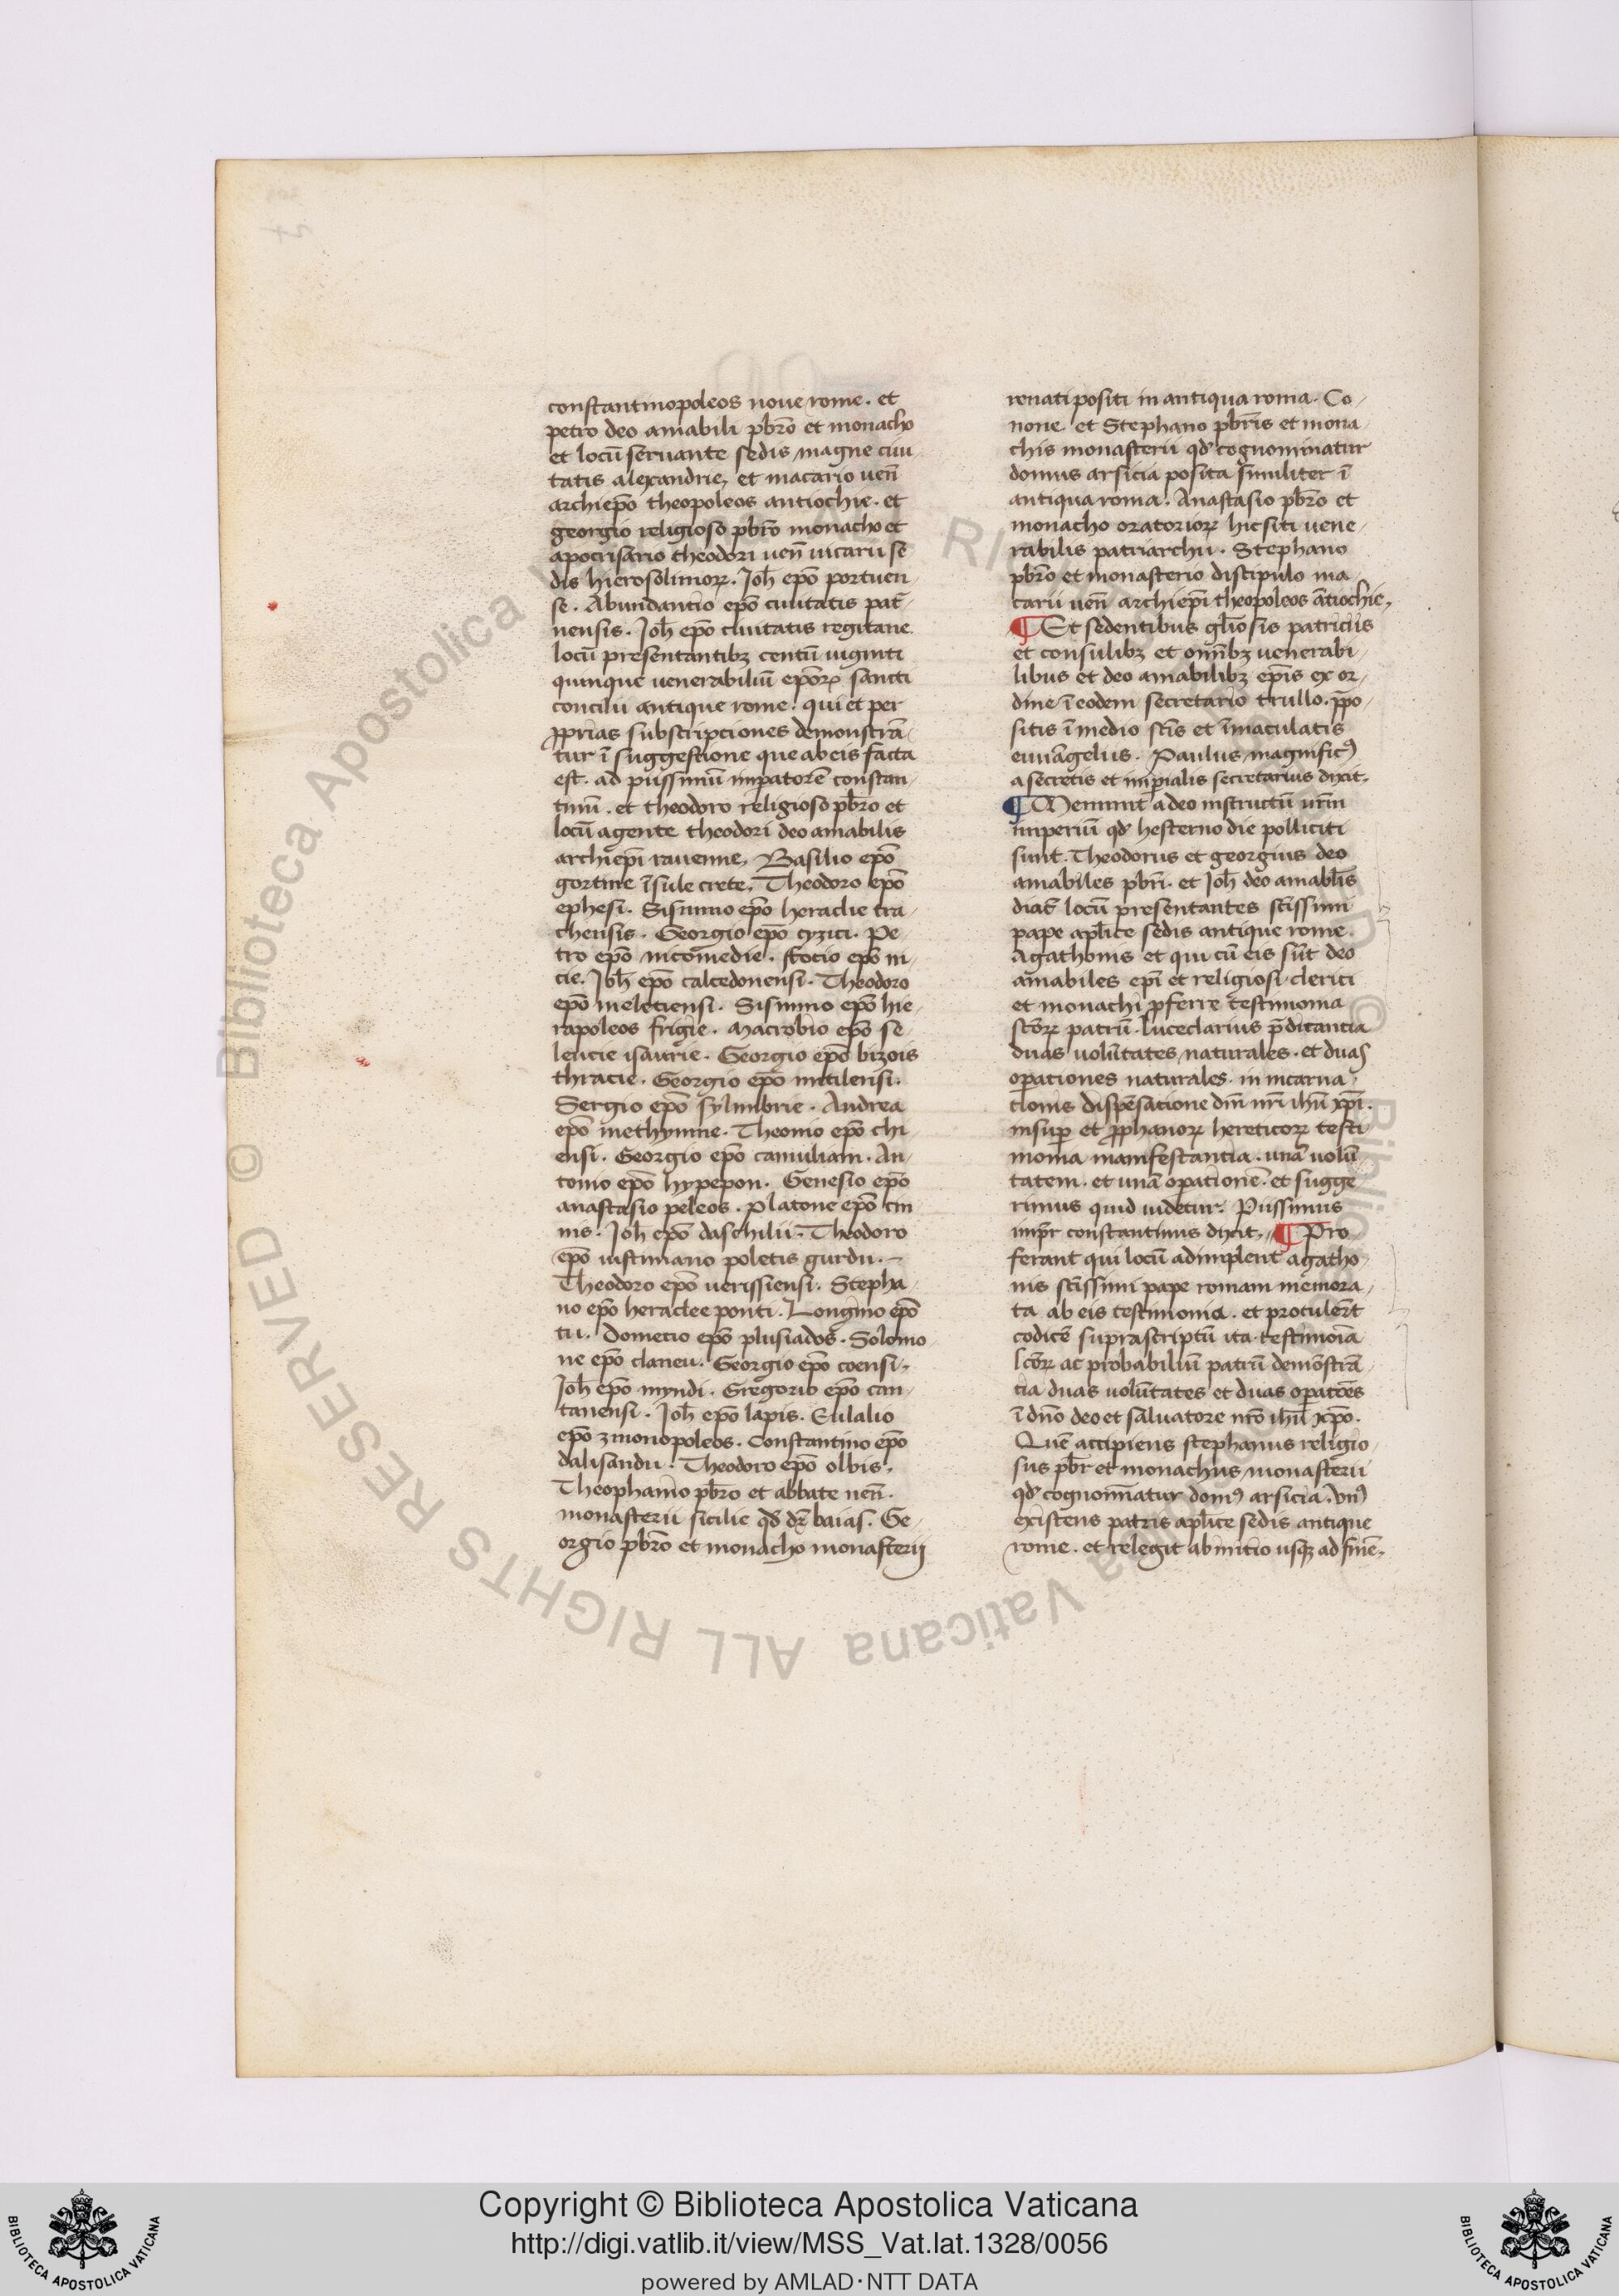 constantinopoleos noue rome. et
petro deo amabili pbr̄o et monacho
et locū seruante sedis magne ciui
tatis alexandrie, et macario ueñ
archiep̄o theopoleos antiochie. et
georgio religioso pbr̄o monacho et
apocrisario theodori ueñ uicarii se
dis hierosolimoꝝ. Joh̄ ep̄o portuen-
se. Abundantio ep̄o ciuitatis pat̄-
nensis. Joh̄ ep̄o ciuitatis regitane
locū presentantibꝫ centū uiginti
quinque uenerabiliū ep̄oꝝ sancti
concilii antique rome. qui et per
ꝓprias subscripciones demonstrā-
tur ī suggestione que ab eis facta
est. ad piissimū imꝑatorē constan-
tinū. et theodoro religioso pbr̄o et
locū agente theodori deo amabilis
archiep̄i rauenne, Basilio ep̄o
gortine īsule crete, Theodoro ep̄o
ephesi. Sisinnio ep̄o heraclie tra-
chensis. Georgio ep̄o cyzici. Pe-
tro ep̄o nicomedie. focio ep̄o ni-
cie. Joh̄ ep̄o calcedonensi. Theodoro
ep̄o meletiensi. Sisinnio ep̄o hie-
rapoleos frigie. Macrobio ep̄o se-
leucie ysaurie. Georgio ep̄o bizois
thracie. Georgio ep̄o mitilensi.
Sergio ep̄o sylimbrie. Andrea
ep̄o methymne. Theonio ep̄o chi-
ensi. Georgio ep̄o camuliam. An-
tonio ep̄o hypepon. Genesio ep̄o
anastasio peleos. Platone ep̄o cin
nis. Joh̄ ep̄o daschilii. Theodoro
ep̄o iustiniano poletis gurdu. -
Theodoro ep̄o uerissiensi. Stepha-
no ep̄o heraclee ponti. Longino ep̄o
tii. Dometio ep̄o plusiados. Solomo-
ne ep̄o claneu. Georgio ep̄o coensi.
Joh̄ ep̄o myndi. Gregorio ep̄o can-
tanensi. Joh̄ ep̄o lapis. Eulalio
ep̄o zmonopoleos. Constantino ep̄o
dalisandu. Theodoro ep̄o olbis.
Theophanio pbr̄o et abbate ueñ.
monasterii sicilie qd̄ dr̄ baias. Ge-
orgio pbr̄o et monacho monasterij
renati positi in antiqua roma. Co-
none et Stephano pbr̄is et mona-
chis monasterii qd̄ cognominatur
domus arsicia posita similiter ī
antiqua roma. Anastasio pbr̄o et
monacho oratorioꝝ hic siti uene-
rabilis patriarchii. Stephano
pbr̄o et monasterio discipulo ma-
carii ueñ archiep̄i theopoleos ātiochie,
¶ Et sedentibus gl̄iosis patriciis
et consulibꝫ et om̄ibꝫ uenerabi-
libus et deo amabilibꝫ ep̄is ex or-
dine ī eodem secretario trullo. p̄po-
sitis ī medio sc̄is et īmaculatis
euuāgeliis. Paulus magnificꝰ
a secretis et imꝑialis secretarius dixit.
¶ Meminit a deo instructū ur̄m
imperiū qd̄ hesterno die polliciti
sunt. Theodorus et georgius deo
amabiles pbr̄i. et Joh̄ deo amabl̄is
diac̄ locū presentantes sc̄issimi
pape apl̄ice sedis antique rome.
Agathonis et qui cū eis sūt deo
amabiles ep̄i et religiosi clerici
et monachi ꝓferre testimonia
sc̄oꝝ patrū. luceclarius p̄dicantia
duas uolūtates naturales. et duas
oꝑationes naturales. in incarna-
tionis dispēsatione dn̄i nr̄i ih̄u xp̄i.
insuꝑ et ꝓphanoꝝ hereticoꝝ testi
monia manifestantia. unā uolū-
tatem. et unā oꝑationē. et sugge
rimus quid uidetur. Piissimus
imꝑr constantinus dixit, ¶ Pro
ferant qui locū adimplent agatho-
nis sc̄issimi pape romam memora-
ta ab eis testimonia. et protuler̄t
codicē suprascriptū ita. testimōia
sc̄oꝝ ac probabiliū patrū demōstrā-
tia duas uolūtates et duas oꝑatōes
ī dn̄o deo et saluatore nr̄o ih̄u xp̄o.
Quē accipiens stephanus religio-
sus pbr̄ et monachus monasterii
qd̄ cognoīatur domꝰ arsicia. vnꝰ
existens patris apl̄ice sedis antique
rome. et relegit ab initio usqꝫ ad finē,
Copyright © Biblioteca Apostolica Vaticana
http://digi.vatlib.it/view/MSS_Vat.lat.1328/0056
powered by AMLAD·NTT DATA
BIBLIOTECA APOSTOLICA VATICANA
BIBLIOTECA APOSTOLICA VATICANA